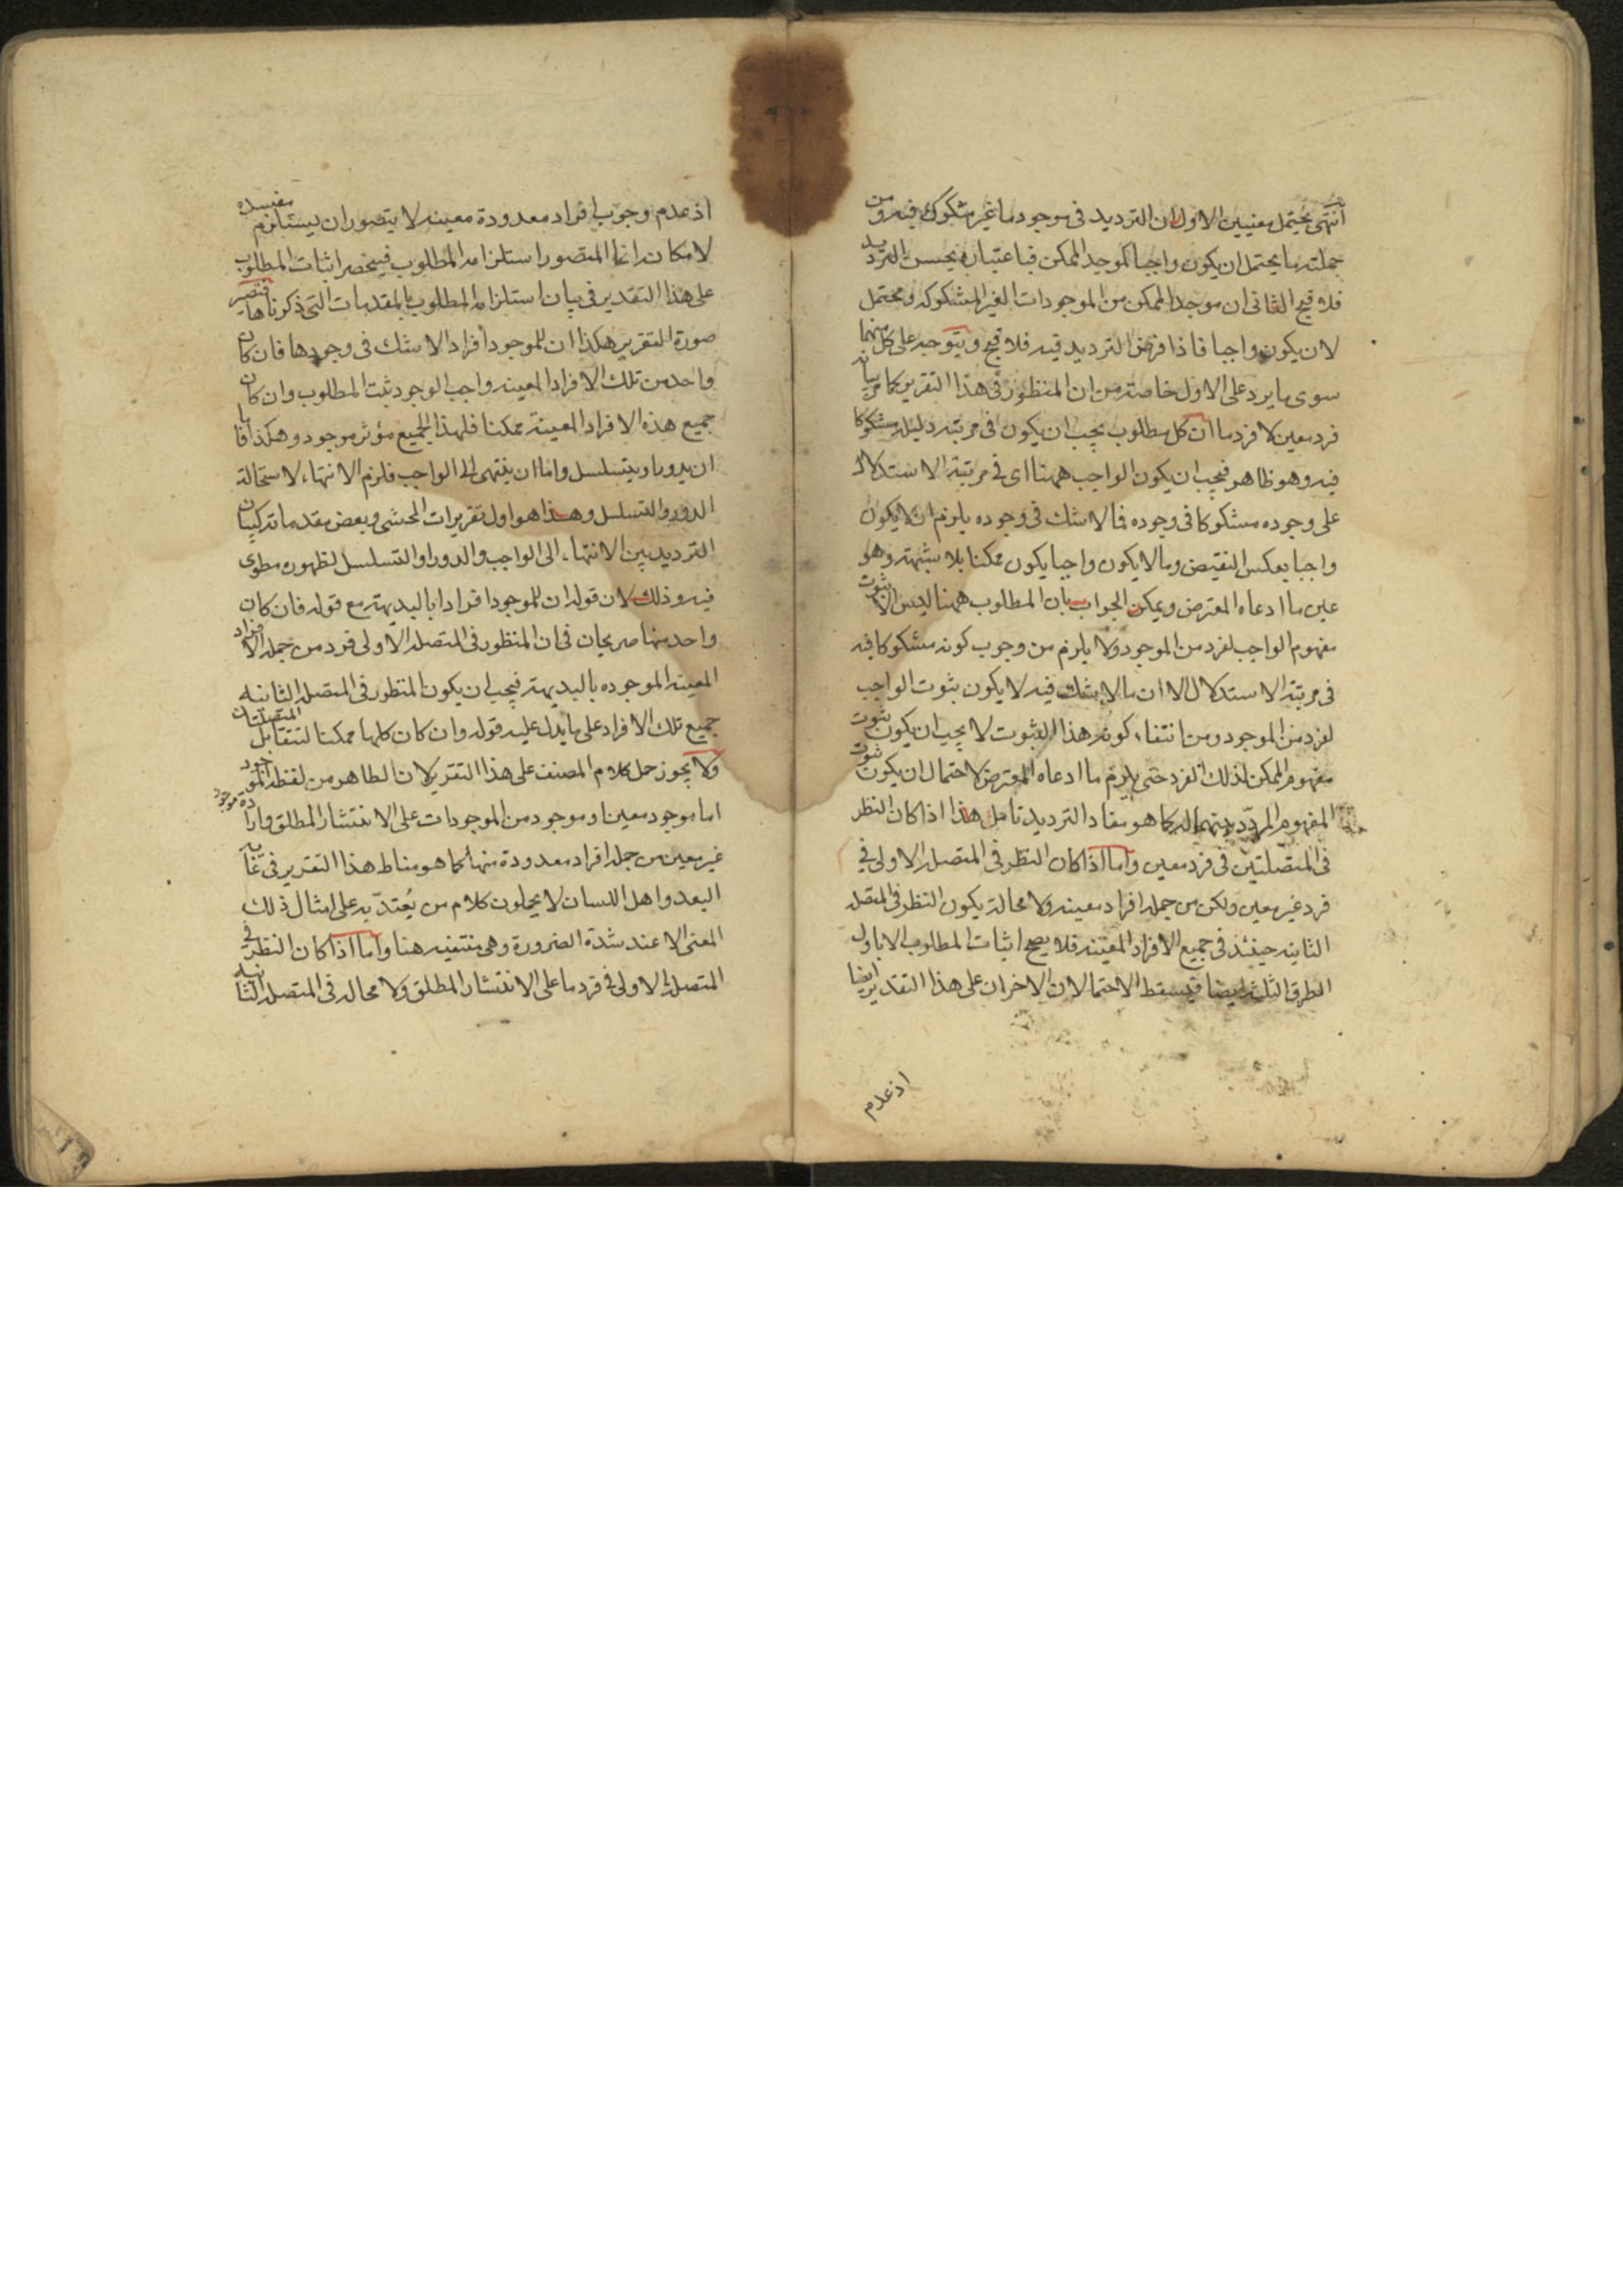 انتهى يحتمل معنيين الاول ان الترديد فى موجود ما غير مشكوك فيه ومن
جملته ما يحتمل ان يكون واجبا كموجد الممكن فباعتباره يحسن الترديد
فلا قبح الثانى ان موجد الممكن من الموجودات الغير المشكوكه ومحتمل
لان يكون واجبا فاذا فرض الترديد فيه فلا قبح ويتوجه على كل منهما
سوى ما يرد على الاول خاصة من ان المنظور فى هذا التقرير كما مر بيانه
فرد معين لا فرد ما ان كل مطلوب يجب ان يكون فى مرتبة دليله مشكوكا
فيه وهو ظاهر فيجب ان يكون الواجب ههنا اى فى مرتبة الاستدلال
على وجوده مشكوكا فى وجوده فما لا شك فى وجوده يلزم ان لا يكون
واجبا بعكس النقيض وما لا يكون واجبا يكون ممكنا بلا شبهة وهو
عين ما ادعاه المعترض ويمكن الجواب بان المطلوب ههنا ليس الا ثبوت
مفهوم الواجب لفرد من الموجود ولا يلزم من وجوب كونه مشكوكا فيه
فى مرتبة الاستدلال الا ان ما لا شك فيه لا يكون ثبوت الواجب
لفرد من الموجود ومن انتفاء كونه هذا الثبوت لا يجب ان يكون ثبوت
مفهوم الممكن لذلك الفرد حتى يلزم ما ادعاه المعترض لاحتمال ان يكون ثبوت
المفهوم المردد بينهما له كما هو مفاد الترديد تامل هذا اذا كان النظر
فى المتصلتين فى فرد معين واما اذا كان النظر فى المتصلة الاولى فى
فرد غير معين ولكن من جملة افراد معينه ولا محالة يكون النظر فى المتصله
الثانيه حينئذ فى جميع الافراد المعينه فلا يصح اثبات المطلوب الا باول
الطرق الثلثه ايضا فيسقط الاحتمالان الاخران على هذا التقدير ايضا
اذ عدم
اذ عدم وجوب افراد معدودة معينه لا يتصور ان يستلزم مفسده
لامكانه انما المتصور استلزامه المطلوب فينحصر اثبات المطلوب
على هذا التقدير فى بيان استلزامه المطلوب بالمقدمات التى ذكرناها فتصير
صورة التقرير هكذا ان للموجود افرادا لا شك فى وجودها فان كان
واحد من تلك الافراد المعينه واجب الوجود ثبت المطلوب وان كان
جميع هذه الافراد المعينة ممكنا فلهذا الجميع مؤثر موجود وهكذا فاما
ان يدور او يتسلسل واما ان ينتهى الى الواجب فلزم الانتهاء لاستحالة
الدور والتسلسل وهذا هو اول تقريرات المحشى وبعض مقدماته كبيان
الترديد بين الانتهاء الى الواجب والدور او التسلسل لظهوره مطوى
فيه وذلك لان قوله ان للموجود افرادا بالبديهة مع قوله فان كان
واحد منها صريحان فى ان المنظور فى المتصلة الاولى فرد من جملة الافراد
المعينه الموجوده بالبديهة فيجب ان يكون المنظور فى المتصلة الثانيه
جميع تلك الافراد على ما يدل عليه قوله وان كان كلها ممكنا لتتقابل المتصلتان
ولا يجوز حمل كلام المصنف على هذا التقرير لان الظاهر من لفظ الموجود
اما موجود معين او موجود من الموجودات على الانتشار المطلق وارادة موجود
غير معين من جملة افراد معدودة منها كما هو مناط هذا التقرير فى غاية
البعد واهل اللسان لا يحملون كلام من يُعتدّ به على امثال ذلك
المعنى الا عند شدة الضرورة وهى منتفيه هنا واما اذا كان النظر فى
المتصلة الاولى فى فرد ما على الانتشار المطلق ولا محاله فى المتصلة الثانيه